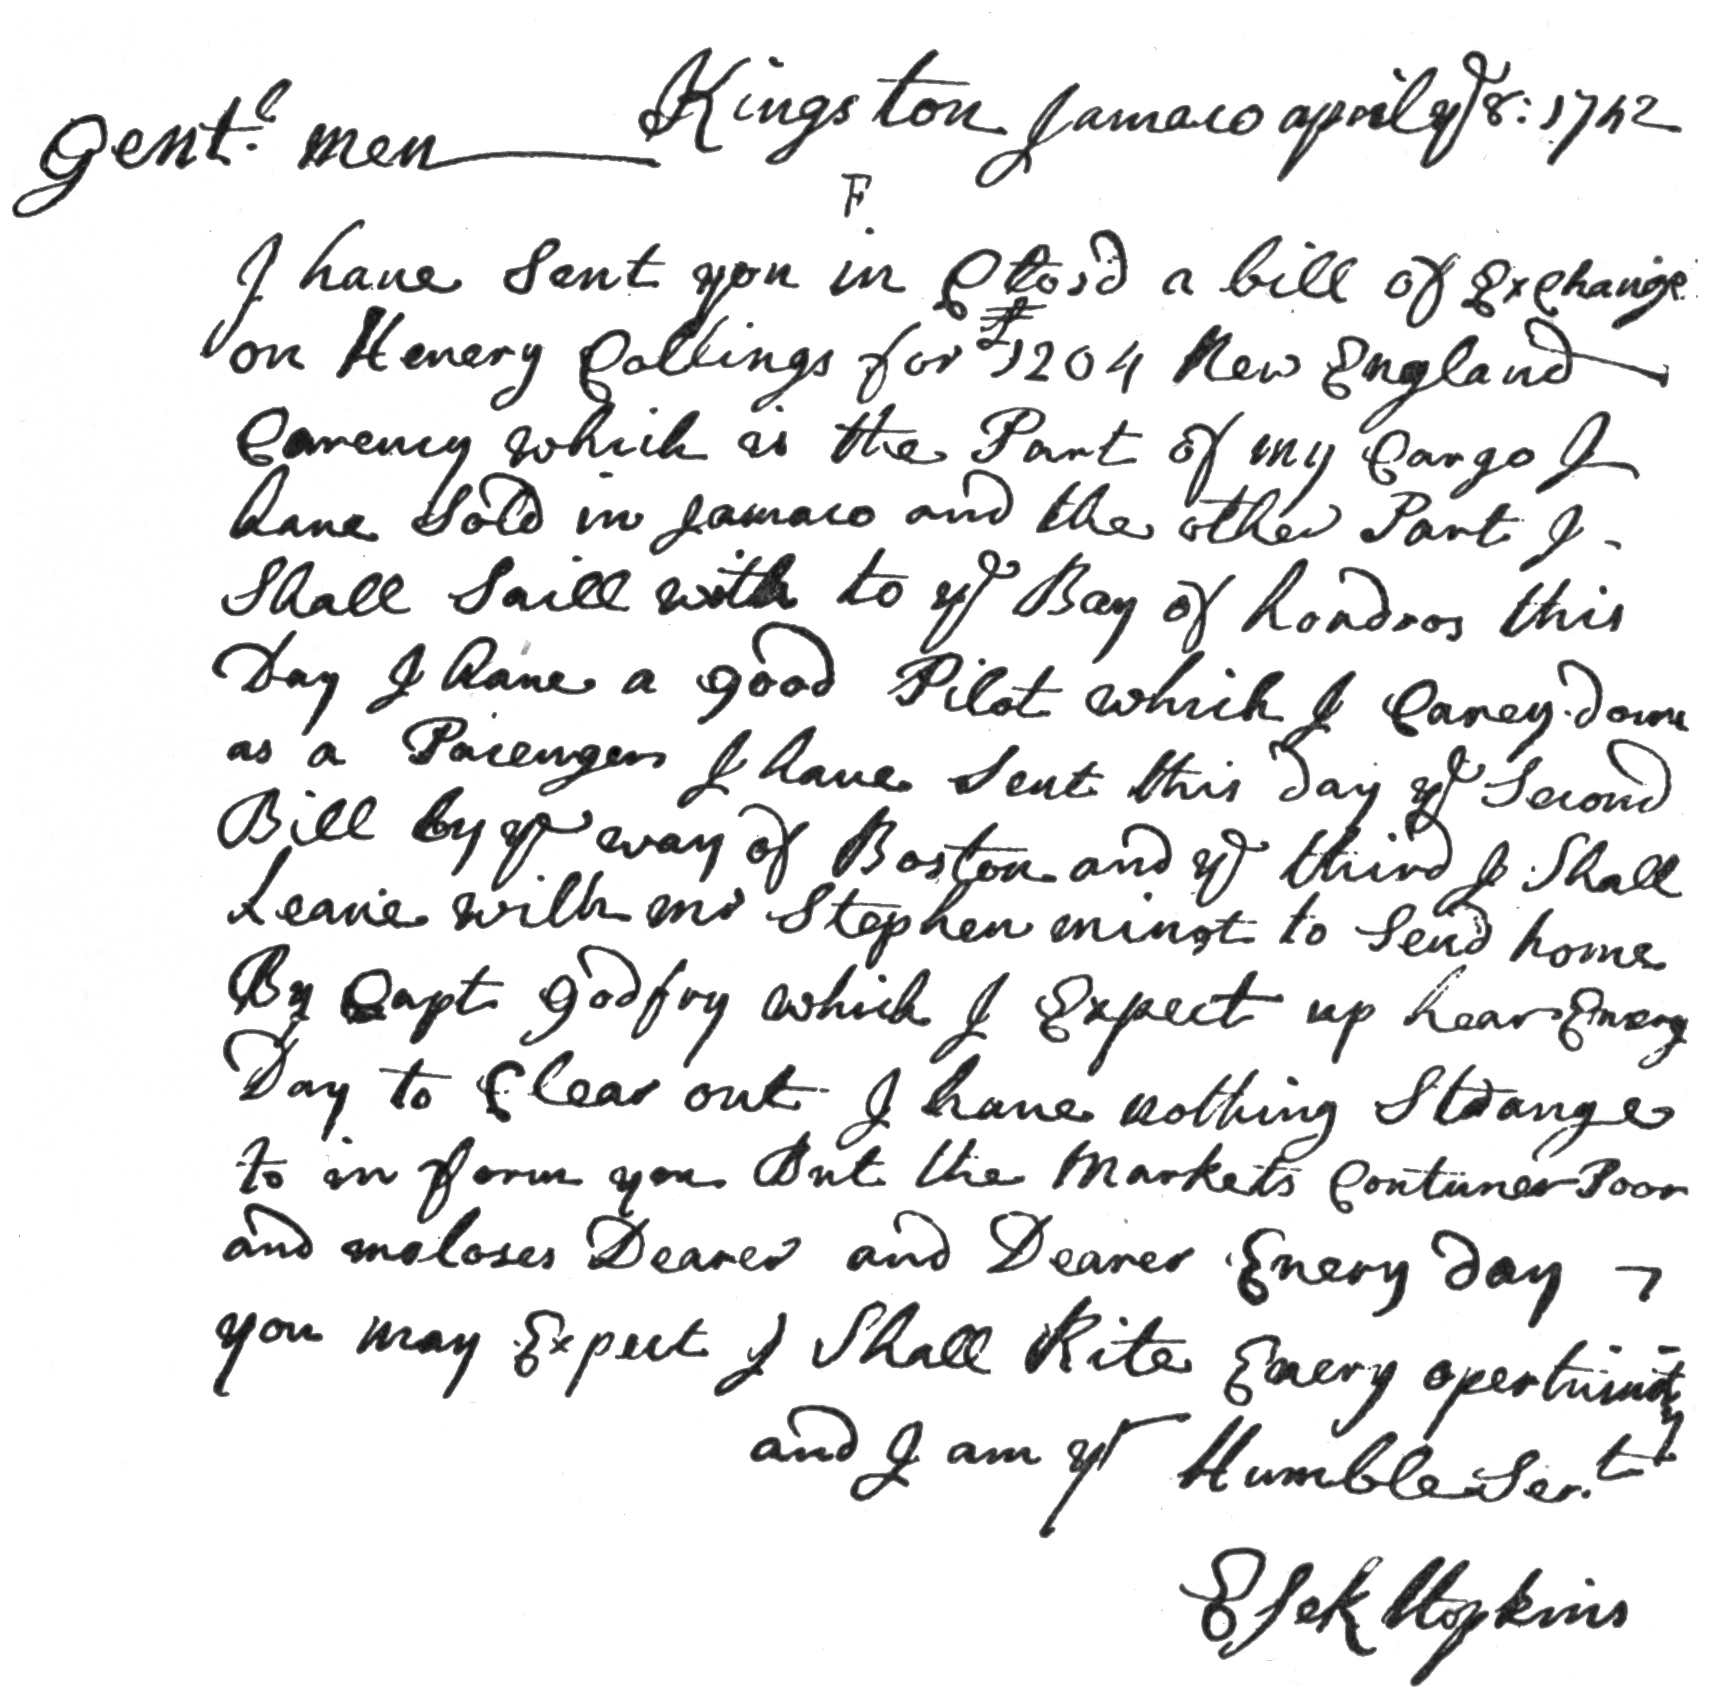 Kingston Jamaco april ye 8: 1742
Gentle men
F
I have Sent you in Closd a bill of Exchange
on Henery Collings for £1204 New England
Carency which is the Part of my Cargo I
have Sold in Jamaco and the other Part I
Shall Saill with to ye Bay of hondros this
Day I have a good Pilot which I Carey down
as a Pasenger I have Sent this day ye Second
Bill by ye way of Boston and ye third I Shall
Leave with mr Stephen minot to Send home
By Capt godfry which I Expect up hear Every
Day to Clear out I have nothing Strange
to in form you But the Markets Contuner Poor
and moloses Dearer and Dearer Every day
you may Expect I Shall Rite Every opertuinity
and I am yr Humble Sert
Esek Hopkins